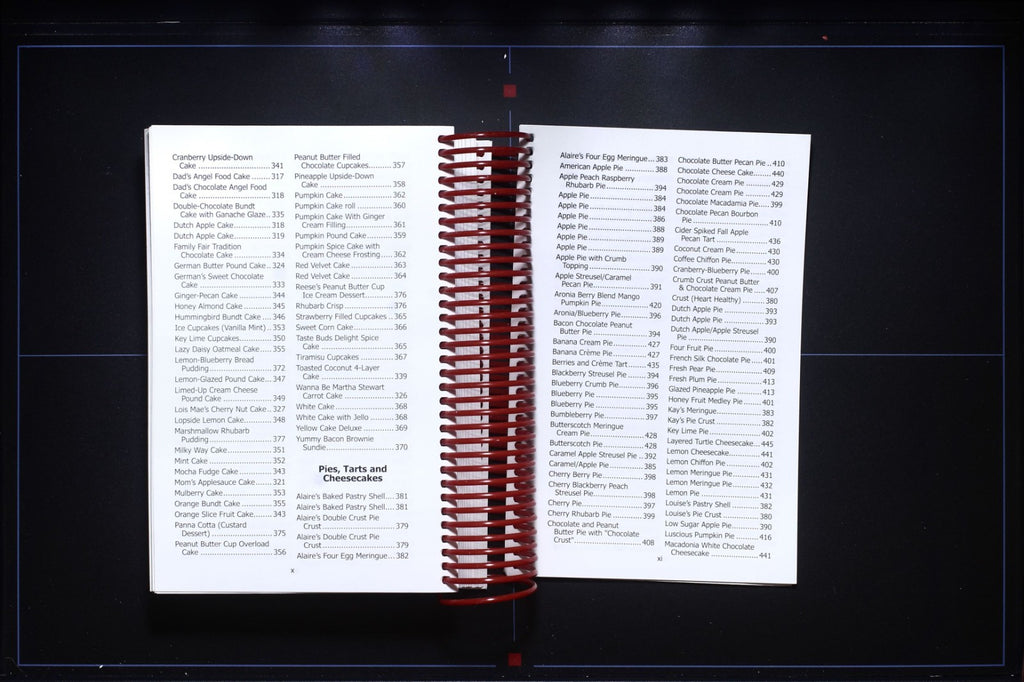 Cranberry Upside-Down
Cake ............................ 341
Dad's Angel Food Cake ....... 317
Dad's Chocolate Angel Food
Cake ............................ 318
Double-Chocolate Bundt
Cake with Ganache Glaze.. 335
Dutch Apple Cake ............... 318
Dutch Apple Cake ............... 319
Family Fair Tradition
Chocolate Cake .............. 334
German Butter Pound Cake.. 324
German's Sweet Chocolate
Cake ............................ 333
Ginger-Pecan Cake ............. 344
Honey Almond Cake ............ 345
Hummingbird Bundt Cake .... 346
Ice Cupcakes (Vanilla Mint) .. 353
Key Lime Cupcakes ............. 350
Lazy Daisy Oatmeal Cake ..... 355
Lemon-Blueberry Bread
Pudding ........................ 372
Lemon-Glazed Pound Cake... 347
Limed-Up Cream Cheese
Pound Cake ................... 349
Lois Mae's Cherry Nut Cake.. 327
Lopside Lemon Cake ........... 348
Marshmallow Rhubarb
Pudding ........................ 377
Milky Way Cake .................. 351
Mint Cake ......................... 352
Mocha Fudge Cake .............. 343
Mom's Applesauce Cake ...... 321
Mulberry Cake .................... 353
Orange Bundt Cake ............. 355
Orange Slice Fruit Cake ....... 343
Panna Cotta (Custard
Dessert) ........................ 375
Peanut Butter Cup Overload
Cake ............................ 356
Peanut Butter Filled
Chocolate Cupcakes ......... 357
Pineapple Upside-Down
Cake ............................ 358
Pumpkin Cake .................... 362
Pumpkin Cake roll ............... 360
Pumpkin Cake With Ginger
Cream Filling .................. 361
Pumpkin Pound Cake ........... 359
Pumpkin Spice Cake with
Cream Cheese Frosting ..... 362
Red Velvet Cake ................. 363
Red Velvet Cake ................. 364
Reese's Peanut Butter Cup
Ice Cream Dessert ........... 376
Rhubarb Crisp .................... 376
Strawberry Filled Cupcakes .. 365
Sweet Corn Cake ................ 366
Taste Buds Delight Spice
Cake ............................ 365
Tiramisu Cupcakes .............. 367
Toasted Coconut 4-Layer
Cake ............................ 339
Wanna Be Martha Stewart
Carrot Cake ................... 326
White Cake ....................... 368
White Cake with Jello .......... 368
Yellow Cake Deluxe ............. 369
Yummy Bacon Brownie
Sundie .......................... 370
Pies, Tarts and
Cheesecakes
Alaire's Baked Pastry Shell.... 381
Alaire's Baked Pastry Shell.... 381
Alaire's Double Crust Pie
Crust ............................ 379
Alaire's Double Crust Pie
Crust ............................ 379
Alaire's Four Egg Meringue... 382
x
Alaire's Four Egg Meringue... 383
American Apple Pie ............. 388
Apple Peach Raspberry
Rhubarb Pie ................... 394
Apple Pie .......................... 384
Apple Pie .......................... 384
Apple Pie .......................... 386
Apple Pie .......................... 388
Apple Pie .......................... 389
Apple Pie .......................... 389
Apple Pie with Crumb
Topping ........................ 390
Apple Streusel/Caramel
Pecan Pie ...................... 391
Aronia Berry Blend Mango
Pumpkin Pie ................... 420
Aronia/Blueberry Pie ........... 396
Bacon Chocolate Peanut
Butter Pie ...................... 394
Banana Cream Pie .............. 427
Banana Crème Pie .............. 427
Berries and Crème Tart ....... 435
Blackberry Streusel Pie ....... 394
Blueberry Crumb Pie ........... 396
Blueberry Pie ..................... 395
Blueberry Pie ..................... 395
Bumbleberry Pie ................. 397
Butterscotch Meringue
Cream Pie ..................... 428
Butterscotch Pie ................. 428
Caramel Apple Streusel Pie .. 392
Caramel/Apple Pie .............. 385
Cherry Berry Pie ................. 398
Cherry Blackberry Peach
Streusel Pie ................... 398
Cherry Pie ......................... 397
Cherry Rhubarb Pie ............. 399
Chocolate and Peanut
Butter Pie with "Chocolate
Crust" ........................... 408
Chocolate Butter Pecan Pie .. 410
Chocolate Cheese Cake ....... 440
Chocolate Cream Pie ........... 429
Chocolate Cream Pie ........... 429
Chocolate Macadamia Pie .... 399
Chocolate Pecan Bourbon
Pie ............................... 410
Cider Spiked Fall Apple
Pecan Tart ..................... 436
Coconut Cream Pie ............. 430
Coffee Chiffon Pie ............... 430
Cranberry-Blueberry Pie ...... 400
Crumb Crust Peanut Butter
& Chocolate Cream Pie .... 407
Crust (Heart Healthy) ......... 380
Dutch Apple Pie ................. 393
Dutch Apple Pie ................. 393
Dutch Apple/Apple Streusel
Pie ............................... 390
Four Fruit Pie .................... 400
French Silk Chocolate Pie .... 401
Fresh Pear Pie ................... 409
Fresh Plum Pie ................... 413
Glazed Pineapple Pie .......... 413
Honey Fruit Medley Pie ....... 401
Kay's Meringue .................. 383
Kay's Pie Crust .................. 382
Key Lime Pie ..................... 402
Layered Turtle Cheesecake... 445
Lemon Cheesecake ............. 441
Lemon Chiffon Pie .............. 402
Lemon Meringue Pie ........... 431
Lemon Meringue Pie ........... 432
Lemon Pie ........................ 431
Louise's Pastry Shell .......... 382
Louise's Pie Crust .............. 380
Low Sugar Apple Pie .......... 390
Luscious Pumpkin Pie ......... 416
Macadonia White Chocolate
Cheesecake ................... 441
xi